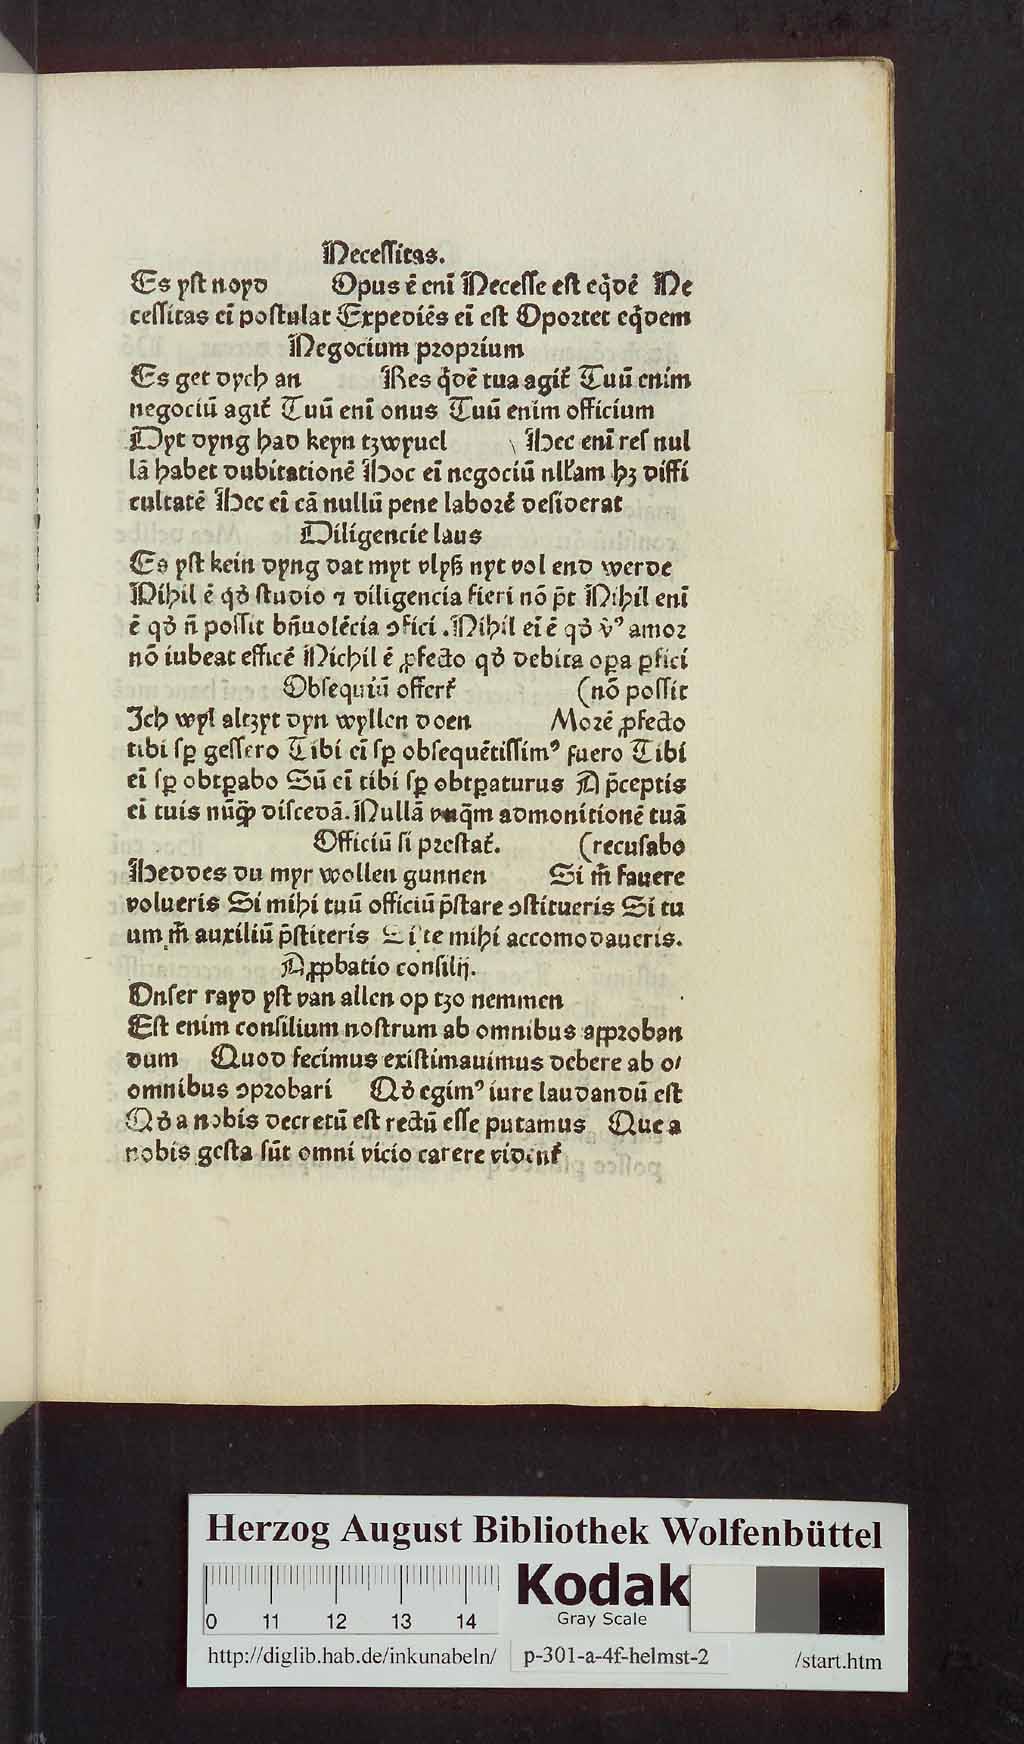 Necessitas.
Es yst noyd Opus ē enī Necesse est eq̇dē Ne
cessitas eī postulat Expediēs eī est Oportet eq̇dem
Negocium proprium
Es get dych an Res q̇dē tua agit᷑ Tuū enim
negociū agit᷑ Tuū enī onus Tuū enim officium
Dyt dyng had keyn tzwyuel Hec enī res nul
lā habet dubitationē Hoc eī negociū nll'am hꝫ diffi
cultatē Hec eī cā nullū pene laborē desiderat
Diligencie laus
Es yst kein dyng dat myt vlyß nyt vol end werde
Nihil ē qđ studio ⁊ diligencia fieri nō p̄t Nihil enī
ē qđ n̄ possit bn̄uolēcia ꝯfici. Nihil eī ē qđ v̓ꝰ amor
nō iubeat efficē Nichil ē ꝓfecto qđ debita oꝑa ꝑfici
Obsequiū offert᷑ (nō possit
Ich wyl altzyt dyn wyllen doen Morē ꝓfecto
tibi sꝑ gessero Tibi eī sꝑ obsequētissimꝰ fuero Tibi
eī sꝑ obtꝑabo Sū eī tibi sꝑ obtꝑaturus A p̄ceptis
eī tuis nūq̄ꝫ discedā. Nullā vnq̄m admonitionē tuā
Officiū si prestat᷑. (recusabo
Heddes du myr wollen gunnen Si m̄ fauere
volueris Si mihi tuū officiū p̄stare ꝯstitueris Si tu
um m̄ auxiliū p̄stiteris Si te mihi accomodaueris.
Aꝓpbatio consilij.
Onser rayd yst van allen op tzo nemmen
Est enim consilium nostrum ab omnibus approban
dum Quod fecimus existimauimus debere ab o/
omnibus ꝯprobari Qđ egimꝰ iure laudandū est
Qđ a nobis decretū est rectū esse putamus Que a
nobis gesta sūt omni vicio carere vident᷑
Herzog August Bibliothek Wolfenbüttel
Kodak
Gray Scale
0 11 12 13 14
http://diglib.hab.de/inkunabeln/ p-301-a-4f-helmst-2 /start.htm